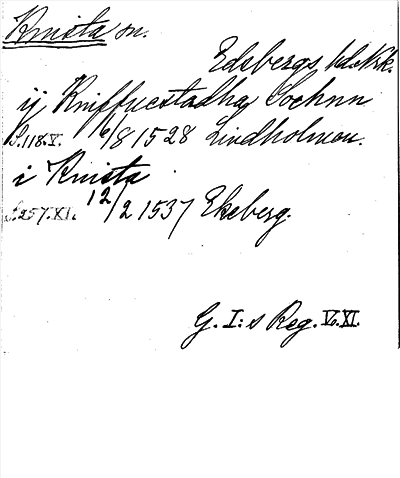 Knista sn.
Edsbergs hd. Nrk.
ij Kniffuestadha Sochnn
S. 118. V. 6/8 1528 Lindholmen.
i Knista
S. 257. XI. 12/2 1537 Ekeberg.
G. I:s Reg. V. XI.